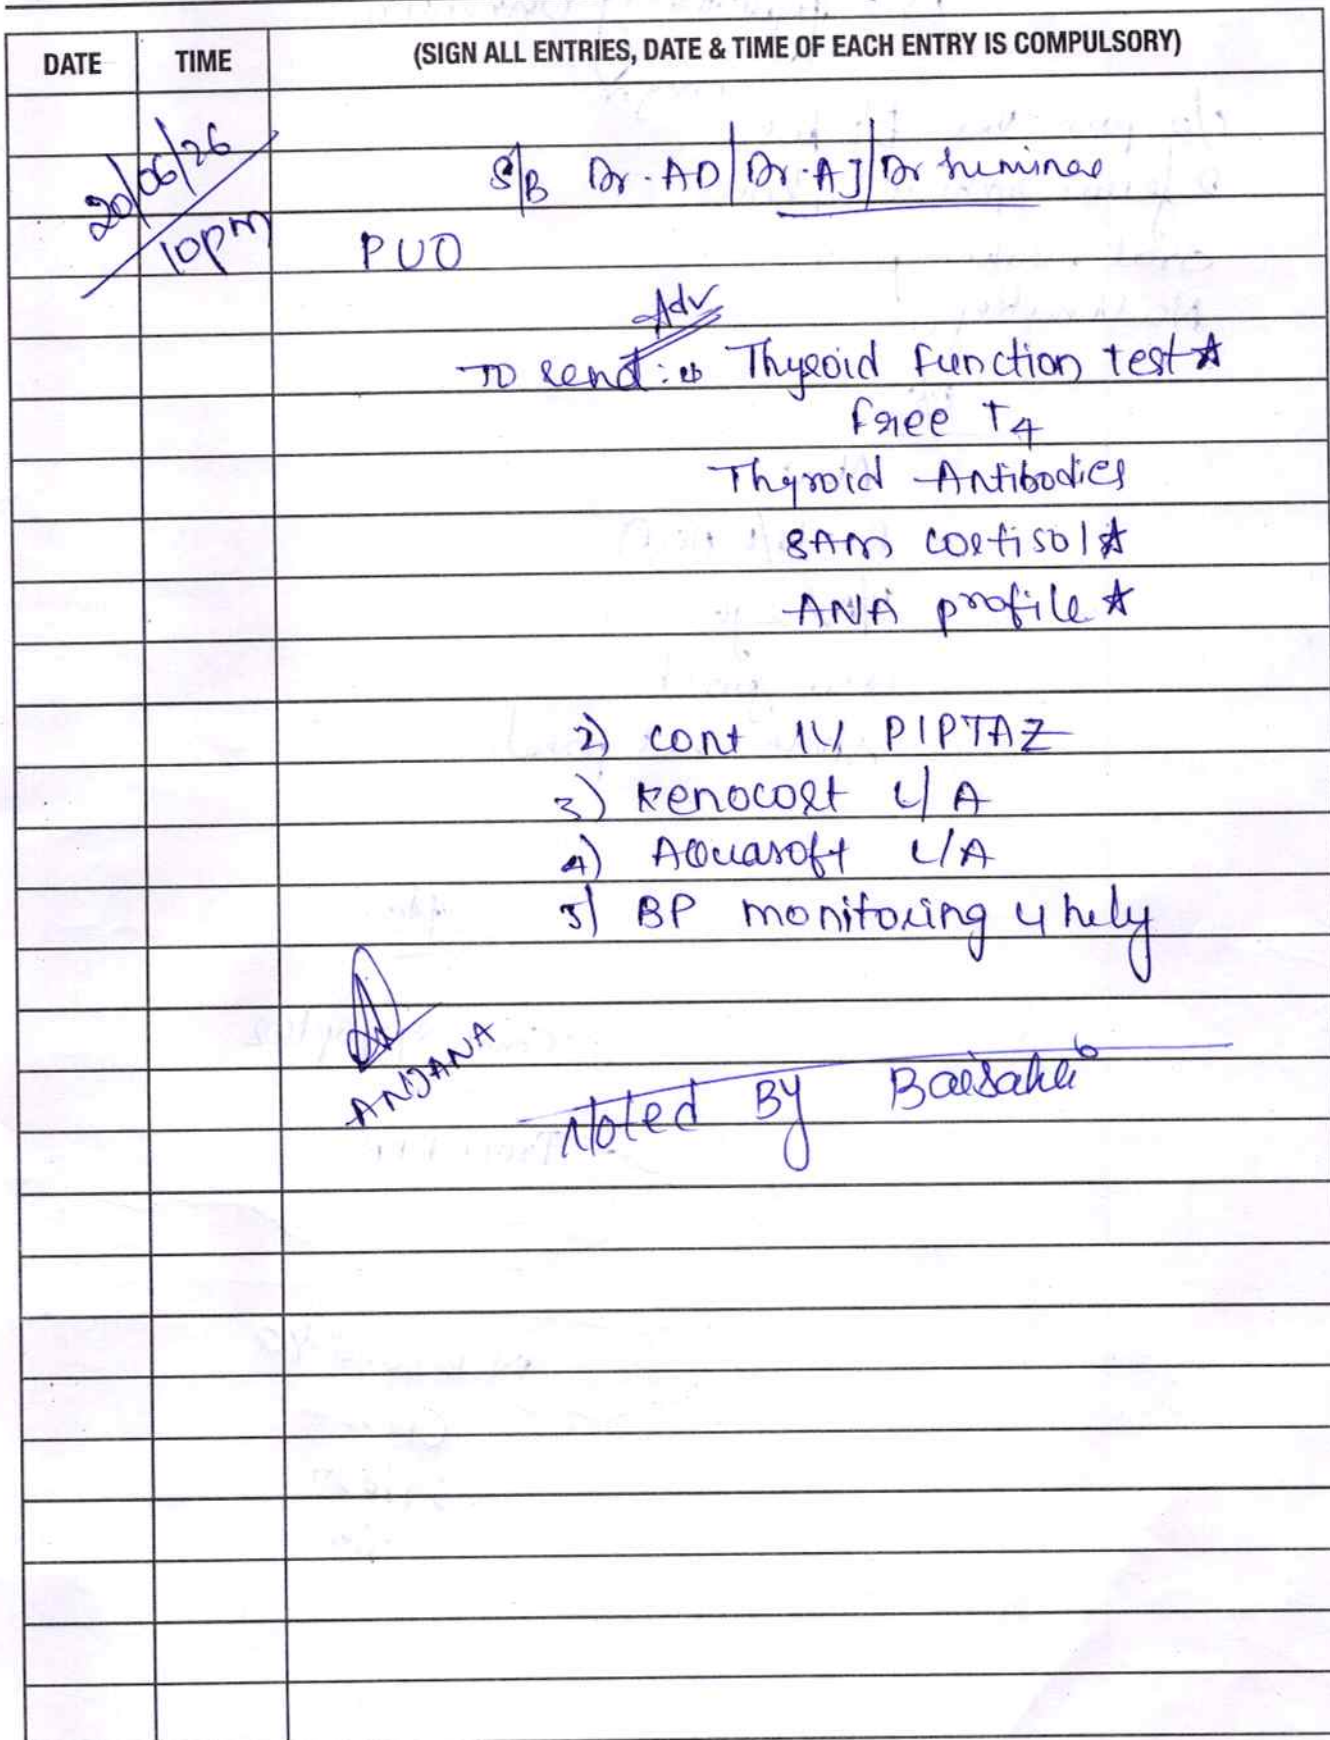 DATE TIME (SIGN ALL ENTRIES, DATE & TIME OF EACH ENTRY IS COMPULSORY)
20/06/26
10pm
S/B Dr. AD/Dr. AJ/Dr
PUO
Adv
To send: Thyroid Function test ☆
free T4
Thyroid Antibodies
8AM cortisol ☆
ANA profile ☆
2) cont IV PIPTAZ
3) Kenocort L/A
4) Aquasoft L/A
5) BP monitoring 4 hrly
ANJANA
Noted By